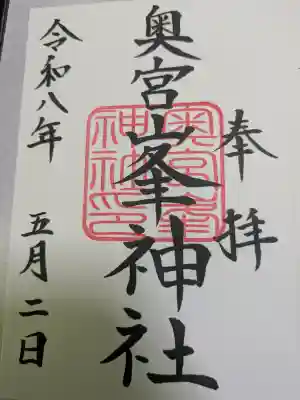 奉拝
奥宮峯神社
奥宮峯神社印
令和八年 五月二日